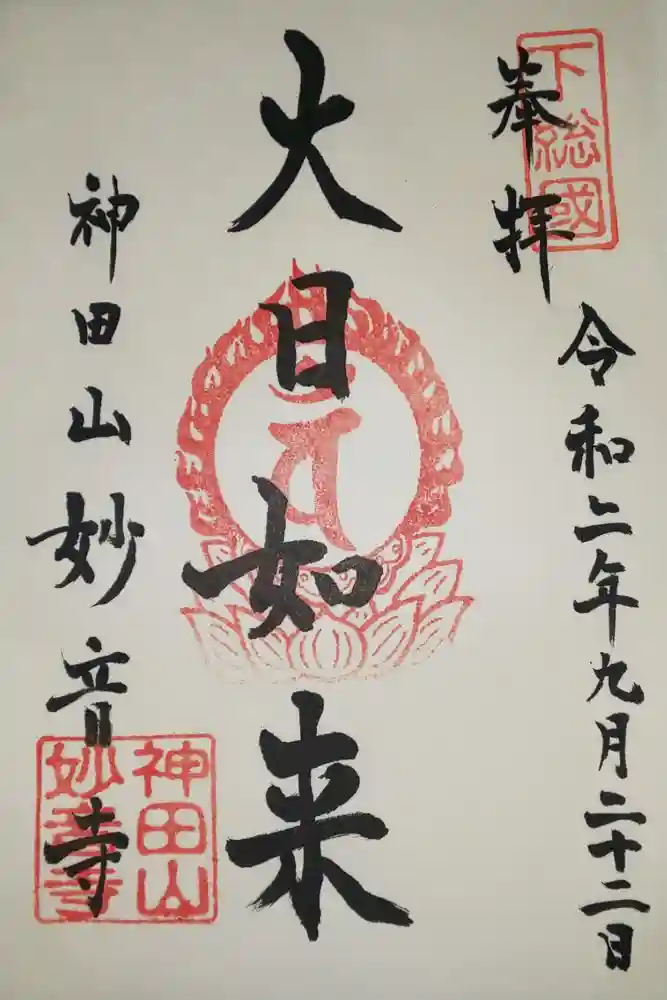 奉拝
下総國
令和二年九月二十二日
大日如来
神田山妙音寺
神田山
妙音寺